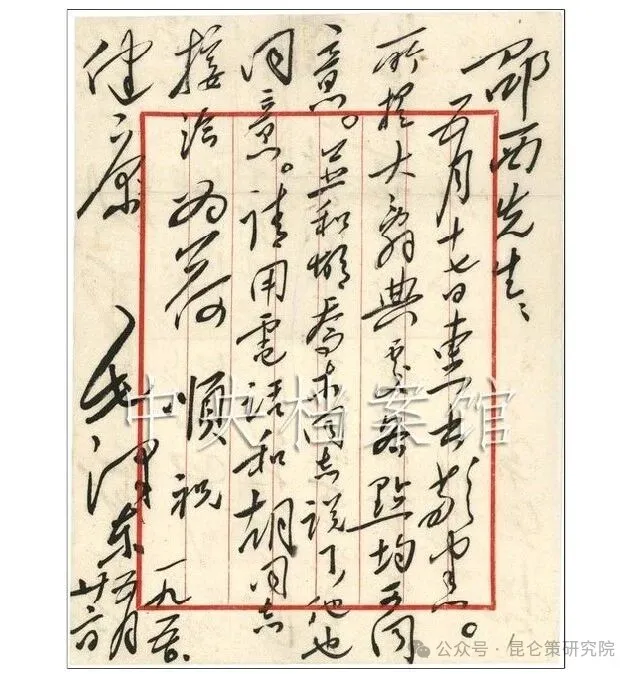 邵西先生、
五月十七日惠书敬悉。
所提大辞典处各点均可同
意。並和胡乔木同志说了,他也
同意。请用電话和胡同志
接洽为荷 顺祝
健康
毛泽东
一九五〇、
五月
中央档案馆
公众号·昆仑策研究院